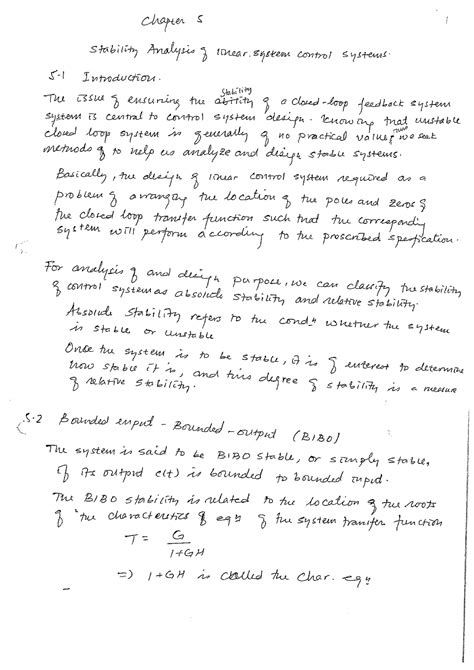 Chapter 5
1
Stability Analysis of linear system control systems.
5.1 Introduction.
Stability
The issue of ensuring the ability of a closed-loop feedback system
system is central to control system design. Knowing that unstable
closed loop system is generally of no practical value, we seek
methods of to help us analyze and design stable systems.
Basically, the design of linear control system required as a
problem of arranging the location of the poles and zeros of
the closed loop transfer function such that the corresponding
system will perform according to the proscribed sperfication.
For analysis of and design purpose, we can classify the stability
of control system as absolute stability and relative stability.
Absolute stability refers to the condn whether the system
is stable or unstable
Once the system is to be stable, it is of enterest to determine
how stable it is, and this degree of stability is a measure
of relative stability.
5.2 Bounded enput - Bounded - output (BIBO)
The system is said to be BIBO stable, or simply stable,
if its output c(t) is bounded to bounded input.
The BIBO stability is related to the location of the roots
of the characteristics of eqn of the system transfer function
T = G
1+GH
=) 1+GH is called the char. eqn